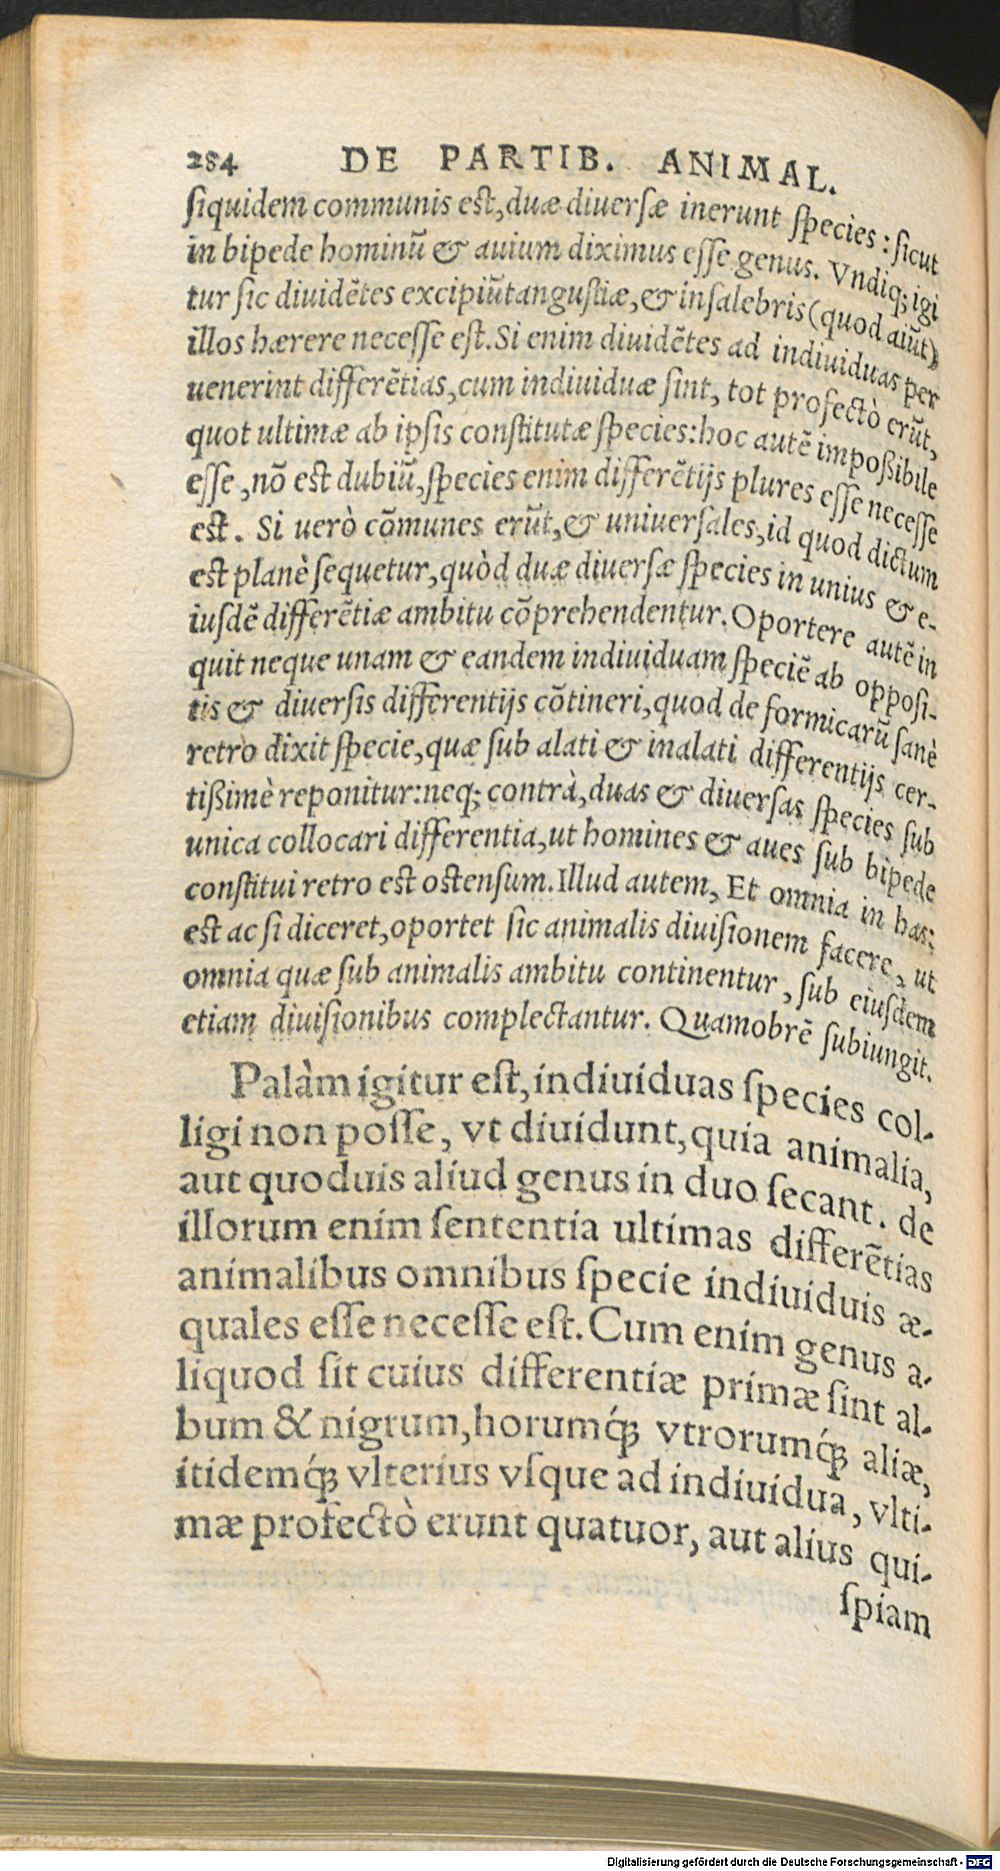 284 DE PARTIB. ANIMAL.
ſiquidem communis eſt, duæ diuerſæ inerunt ſpecies: ſicut
in bipede hominũ & auium diximus eſſe genus. Vndiq; igi
tur ſic diuidẽtes excipiũt anguſtiæ, & inſalebris (quod aiũt)
illos hærere neceſſe eſt. Si enim diuidẽtes ad indiuiduas per
uenerint differẽtias, cum indiuiduæ ſint, tot profectò erũt,
quot ultimæ ab ipſis conſtitutæ ſpecies: hoc autẽ impoßibile
eſſe, nõ eſt dubiũ, ſpecies enim differẽtijs plures eſſe neceſſe
eſt. Si uerò cõmunes erũt, & uniuerſales, id quod dictum
eſt planè ſequetur, quòd duæ diuerſæ ſpecies in unius & e-
iuſdẽ differẽtiæ ambitu cõprehendentur. Oportere autẽ in
quit neque unam & eandem indiuiduam ſpeciẽ ab oppoſi-
tis & diuerſis differentijs cõtineri, quod de formicarũ ſanè
retrò dixit ſpecie, quæ ſub alati & inalati differentijs cer-
tißimè reponitur: neq; contrà, duas & diuerſas ſpecies ſub
unica collocari differentia, ut homines & aues ſub bipede
conſtitui retro eſt oſtenſum. Illud autem, Et omnia in has:
eſt ac ſi diceret, oportet ſic animalis diuiſionem facere, ut
omnia quæ ſub animalis ambitu continentur, ſub eiuſdem
etiam diuiſionibus complectantur. Quamobrẽ ſubiungit.
Palàm igitur eſt, indiuiduas ſpecies col-
ligi non poſſe, vt diuidunt, quia animalia,
aut quoduis aliud genus in duo ſecant. de
illorum enim ſententia ultimas differẽtias
animalibus omnibus ſpecie indiuiduis æ-
quales eſſe neceſſe eſt. Cum enim genus a-
liquod ſit cuius differentiæ primæ ſint al-
bum & nigrum, horumq́; vtrorumq́; aliæ,
itidemq́; vlterius vſque ad indiuidua, vlti-
mæ profectò erunt quatuor, aut alius qui-
ſpiam
Digitalisierung gefördert durch die Deutsche Forschungsgemeinschaft - DFG